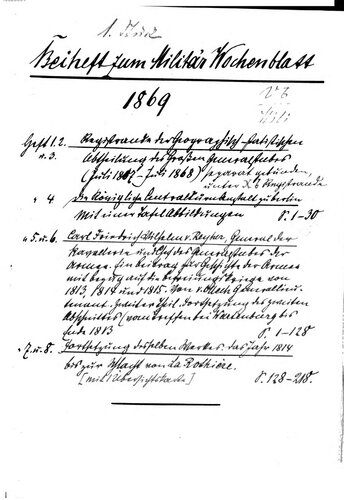 1. Stück
Beiheft zum Militär Wochenblatt
1869
Heft 1.2. Registrande der Geographisch-statistischen
u 3. Abtheilung des Großen Generalstabes
(Juli 1867 - Juli 1868) separat gebunden,
unter X 6 Registrande
" 4 die Königliche Centralturnanstalt zu Berlin
mit einer Tafel Abbildungen S. 1-30
" 5. u. 6. Carl Friedrich Wilhelm v. Reyher, General der
Kavallerie und Chef des Generalstabes der
Armee. Ein Beitrag zur Geschichte der Armee
mit Bezug auf die Befreiungskriege von
1813, 1814 und 1815. Von v. Ollech Generallieu-
tenant. Zweiter Theil. Fortsetzung des zweiten
Abschnittes (vom Treffen bei Wartenburg bis
Ende 1813 S. 1-128
" 7. u. 8. Fortsetzung desselben Werkes. das Jahr 1814
bis zur Schlacht von La Rothière.
[mit 1 Übersichtskarte] S. 128-218.